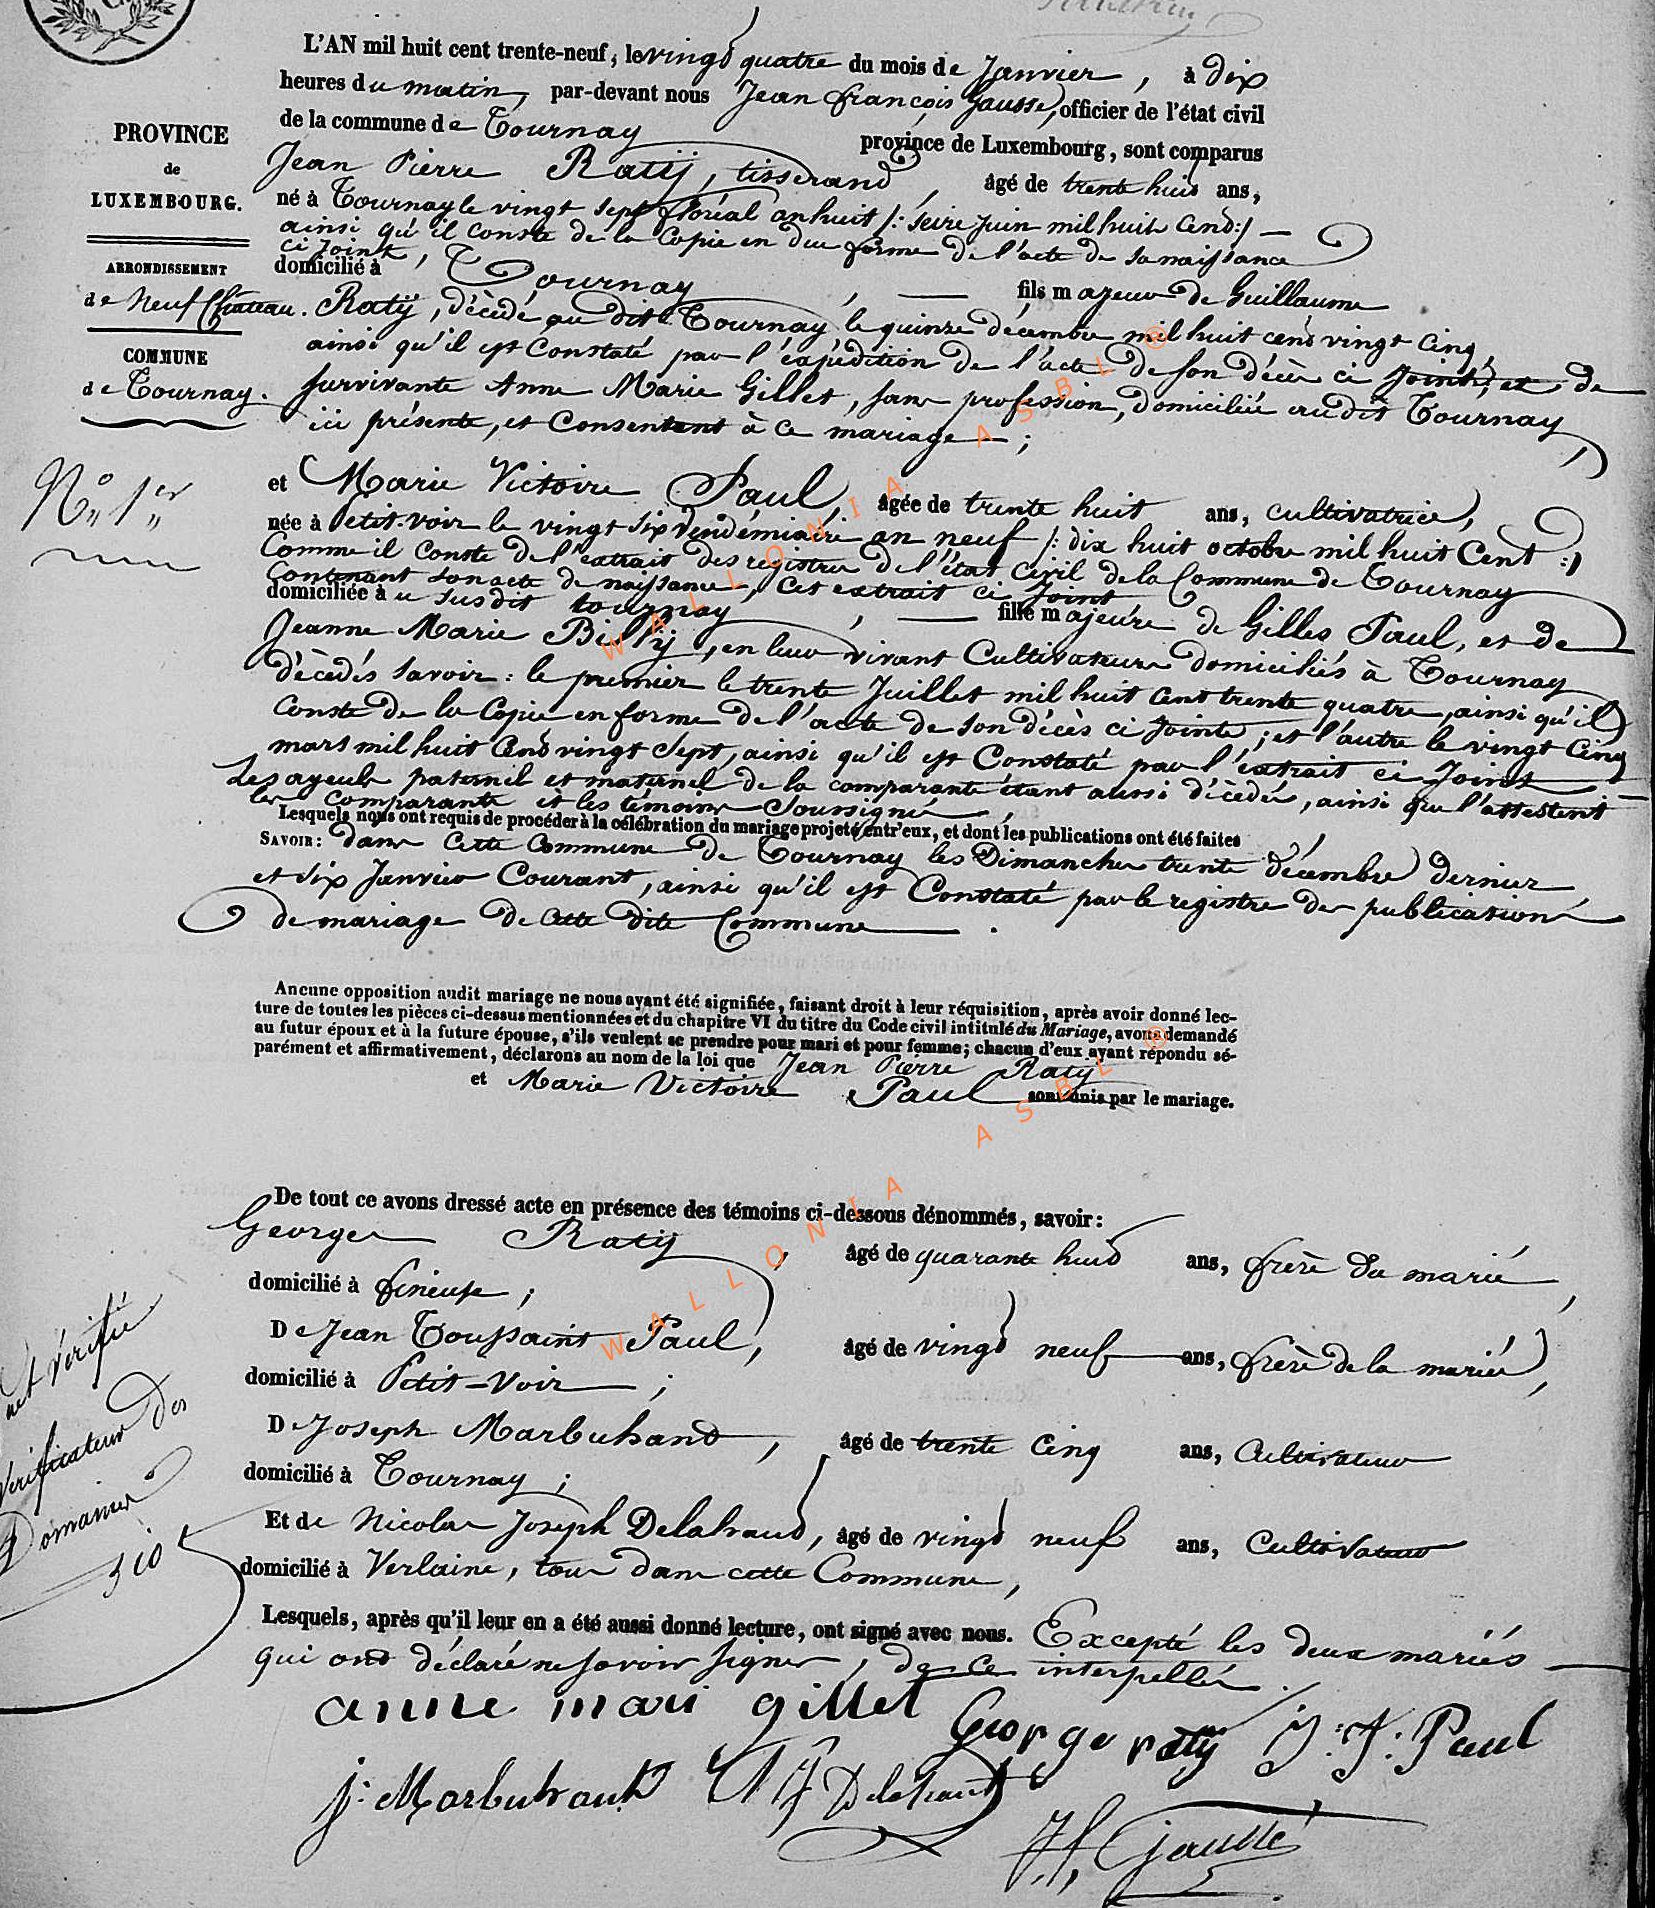 L'AN mil huit cent trente-neuf, le vingt quatre du mois de Janvier, à dix
heures du matin, par-devant nous Jean françois Gausse, officier de l'état civil
de la commune de Tournay province de Luxembourg, sont comparus
Jean Pierre Ratÿ, tisserand, âgé de trente huit ans,
né à Tournay le vingt sept floréal an huit /: seize Juin mil huit Cent :/
ainsi qu'il conste de la Copie en due forme de l'acte de sa naissance
ci Joint,
domicilié à Tournay, fils majeur de Guillaume
Ratÿ, décédé au dit Tournay le quinze décembre mil huit cent vingt cinq,
ainsi qu'il est Constaté par l'expédition de l'acte de son décès ci Jointe, et de
survivante Anne Marie Gillet, sans profession, domiciliée audit Tournay
ici présente, et Consentant à ce mariage ;
et Marie Victoire Paul, âgée de trente huit ans, cultivatrice,
née à Petit-voir le vingt six Vendémiaire an neuf /: dix huit octobre mil huit Cent :/
Comme il conste de l'extrait des registres de l'état Civil de la Commune de Tournay
Contenant son acte de naissance, Cet extrait ci Joint
domiciliée au susdit tournay, fille majeure de Gilles Paul, et de
Jeanne Marie Billÿ, en leur vivant Cultivateurs domiciliés à Tournay
décédés savoir : le premier le trente Juillet mil huit Cent trente quatre, ainsi qu'il
Conste de la Copie en forme de l'acte de son décès ci Jointe ; et l'autre le vingt Cinq
mars mil huit Cent vingt Sept, ainsi qu'il est Constaté par l'extrait ci Joint
Les ayeuls paternel et maternel de la comparante étant aussi décédés, ainsi que l'attestent
les comparants et les témoins Soussignés,
Lesquels nous ont requis de procéder à la célébration du mariage projeté entr'eux, et dont les publications ont été faites
SAVOIR : dans Cette Commune de Tournay les Dimanches trente décembre dernier
et six Janvier Courant, ainsi qu'il est Constaté par le registre des publications
de mariage de Cette dite Commune.
Aucune opposition audit mariage ne nous ayant été signifiée, faisant droit à leur réquisition, après avoir donné lec-
ture de toutes les pièces ci-dessus mentionnées et du chapitre VI du titre du Code civil intitulé du Mariage, avons demandé
au futur époux et à la future épouse, s'ils veulent se prendre pour mari et pour femme ; chacun d'eux ayant répondu sé-
parément et affirmativement, déclarons au nom de la loi que Jean Pierre Ratÿ
et Marie Victoire Paul sont unis par le mariage.
De tout ce avons dressé acte en présence des témoins ci-dessous dénommés, savoir :
Georges Ratÿ, âgé de quarante huit ans, frère du marié,
domicilié à fineuse ;
De Jean Toussaint Paul, âgé de vingt neuf ans, frère de la mariée,
domicilié à Petit-Voir ;
De Joseph Marbuhand, âgé de trente Cinq ans, Cultivateur
domicilié à Tournay ;
Et de Nicolas Joseph Delahaut, âgé de vingt neuf ans, Cultivateur
domicilié à Verlaine, tous dans cette Commune,
Lesquels, après qu'il leur en a été aussi donné lecture, ont signé avec nous. Excepté les deux mariés
qui ont déclaré ne savoir signer, de ce interpellés.
anne mari gillet George ratÿ J: T: Paul
j: Marbuhand NJ Delahaut
JF, Gausse
PROVINCE
de
LUXEMBOURG.
ARRONDISSEMENT
de Neuf Château.
COMMUNE
de Tournay.
N° 1er
et Vérifié
Vérificateur des
Domaines
WALLONIA ASBL ®
WALLONIA ASBL ®